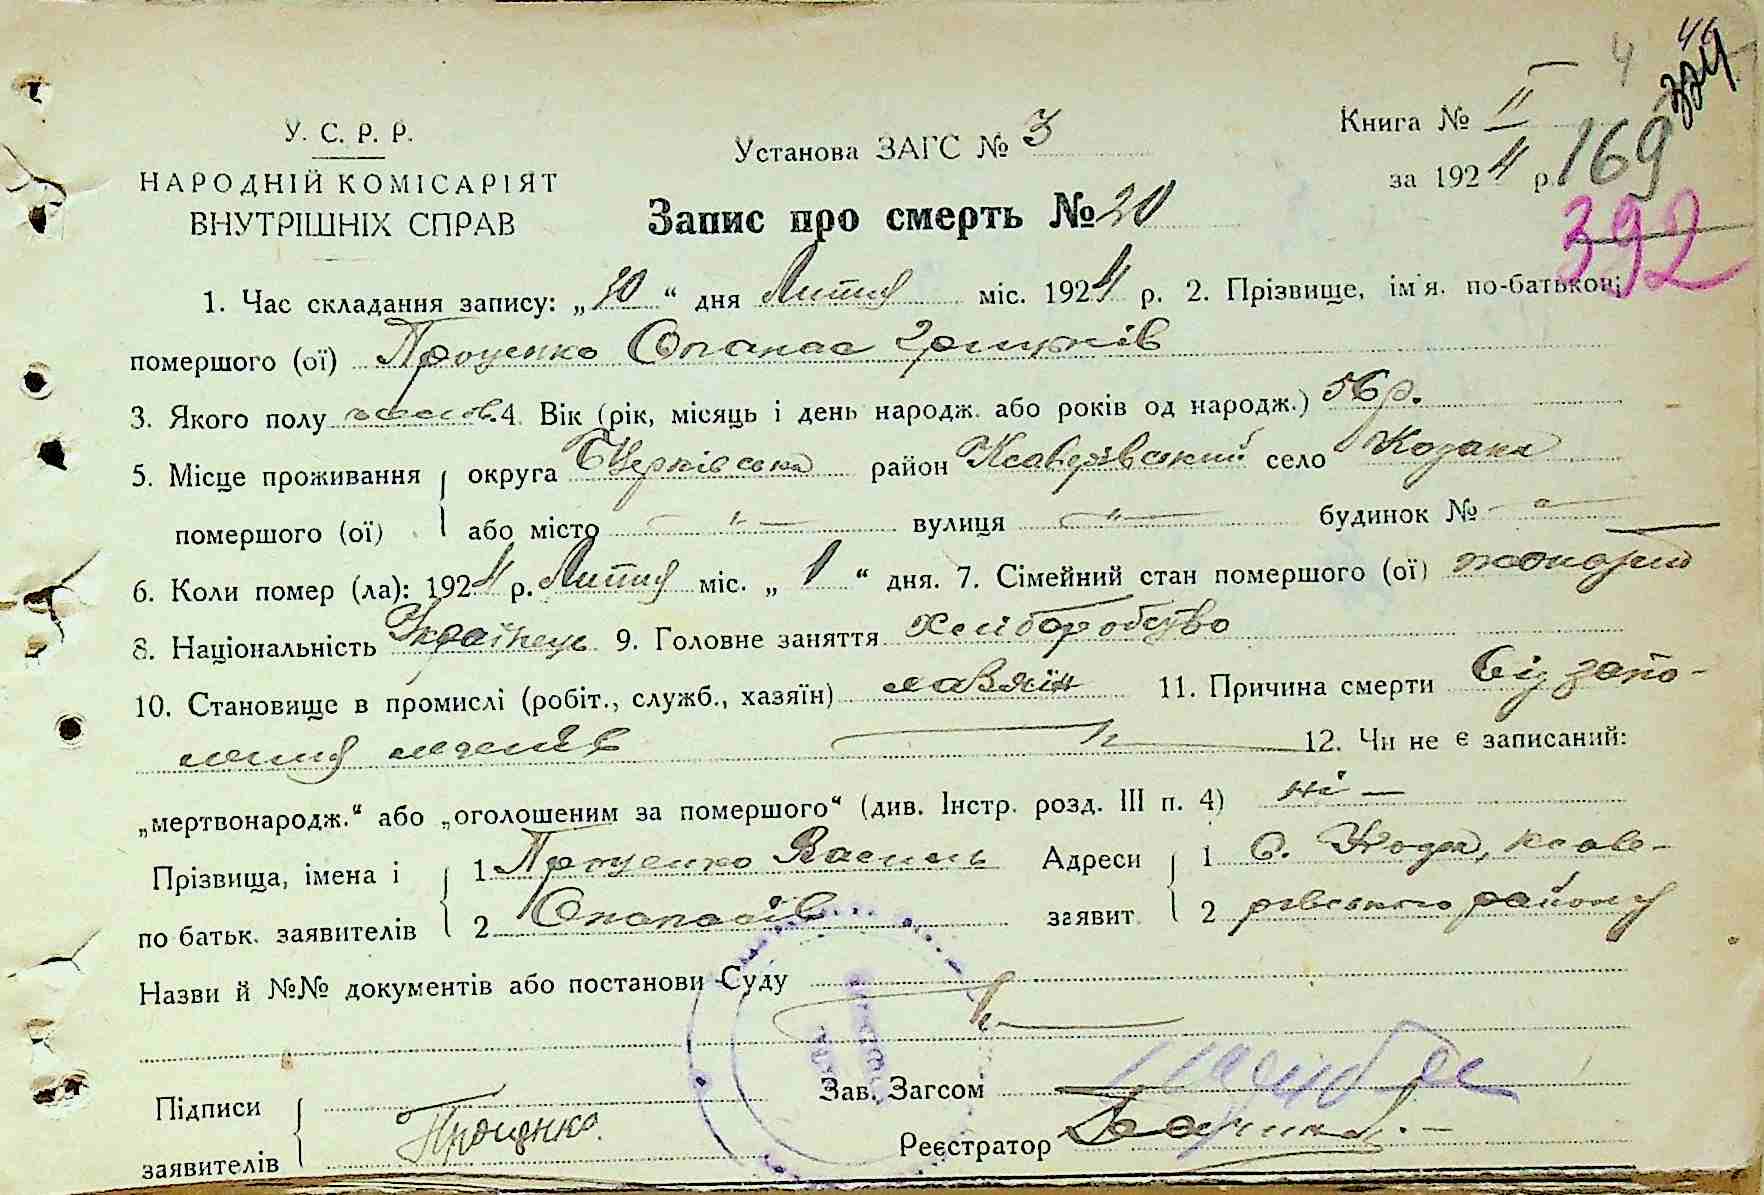 46
324
4
У. С. Р. Р.
НАРОДНІЙ КОМІСАРІЯТ
ВНУТРІШНІХ СПРАВ
Установа ЗАГС № 3
Книга № II
за 1924 р.
169
392
Запис про смерть № 20
1. Час складання запису: „10“ дня Лютня міс. 1924 р. 2. Прізвище, ім'я. по-батькові
помершого (ої) Проценко Опанас
3. Якого полу 4. Вік (рік, місяць і день народж. або років од народж.) 56 р.
5. Місце проживання округа БЦерківська район Ксаверівський село
помершого (ої) або місто —"— вулиця —"— будинок № —"—
6. Коли помер (ла): 1924 р. Лютня міс. „1“ дня. 7. Сімейний стан помершого (ої) жонатий
8. Національність Українець 9. Головне заняття Хліборобство
10. Становище в промислі (робіт., служб., хазяїн) 11. Причина смерти Від запа-
лення легенів 12. Чи не є записаний:
„мертвонародж.“ або „оголошеним за помершого“ (див. Інстр. розд. III п. 4) ні —
Прізвища, імена і 1 Проценко Василь Адреси 1 С. Ксаве-
по батьк. заявителів 2 Опанасів заявит. 2 рівського району
Назви й №№ документів або постанови Суду
Зав. Загсом
Підписи
Проценко
Реєстратор
заявителів